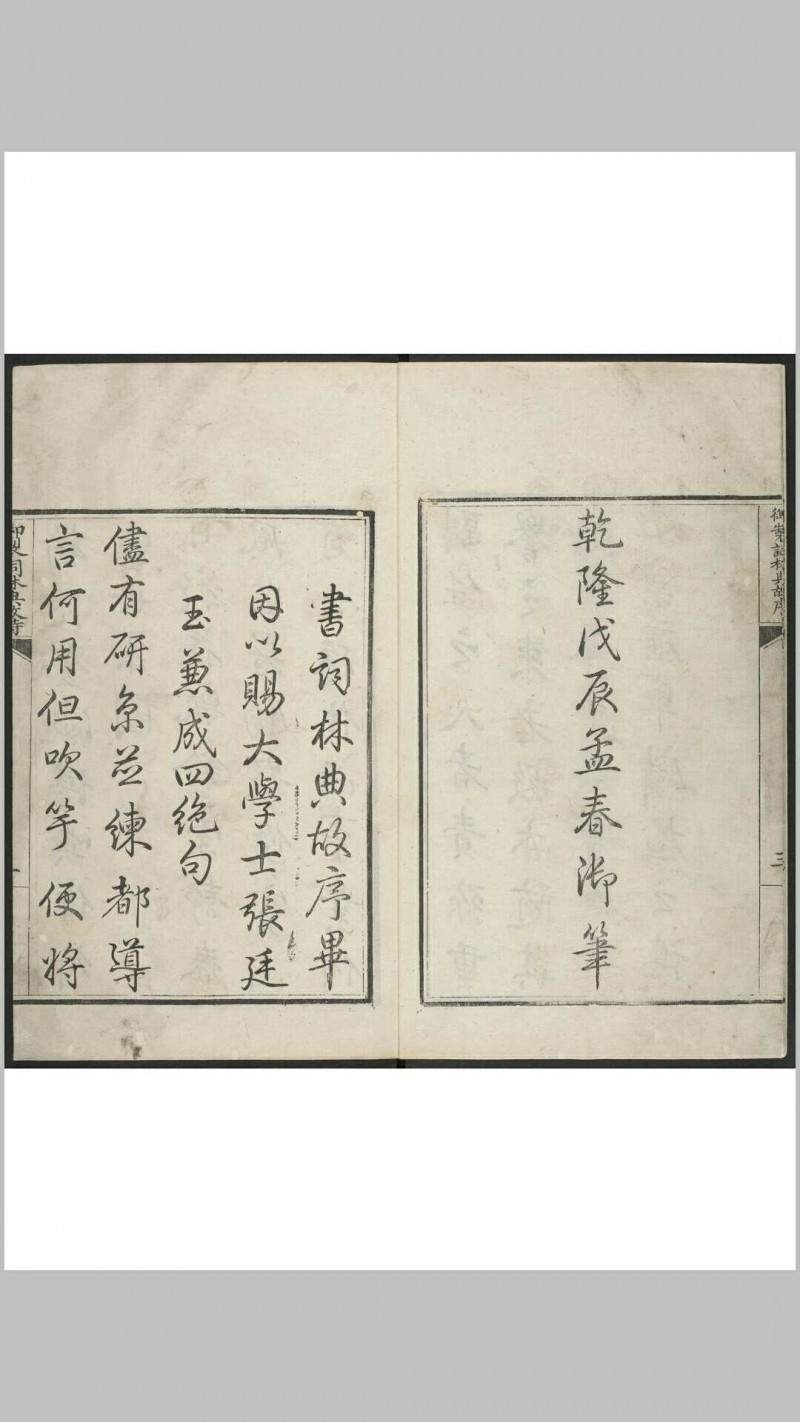 御製詞林典故序
三
乾隆戊辰孟春御筆
書詞林典故序畢
因以賜大學士張廷
玉兼成四絶句
儘有研京並練都導
言何用但吹竽便將